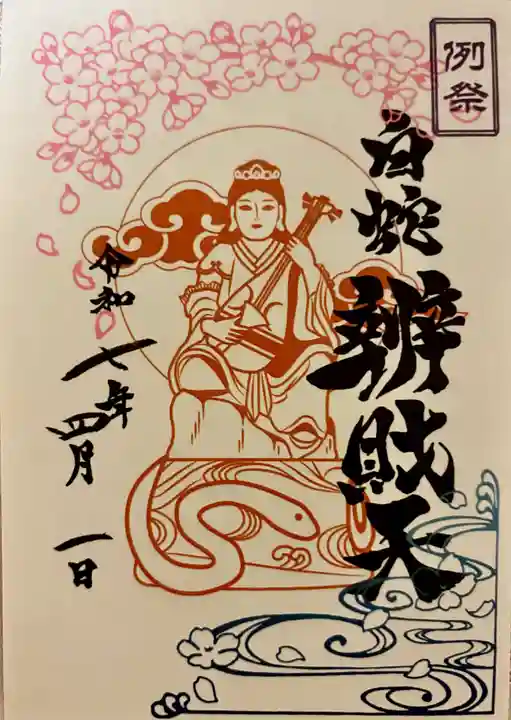 例祭
白蛇
辨財天
令和
七年
四月
一日